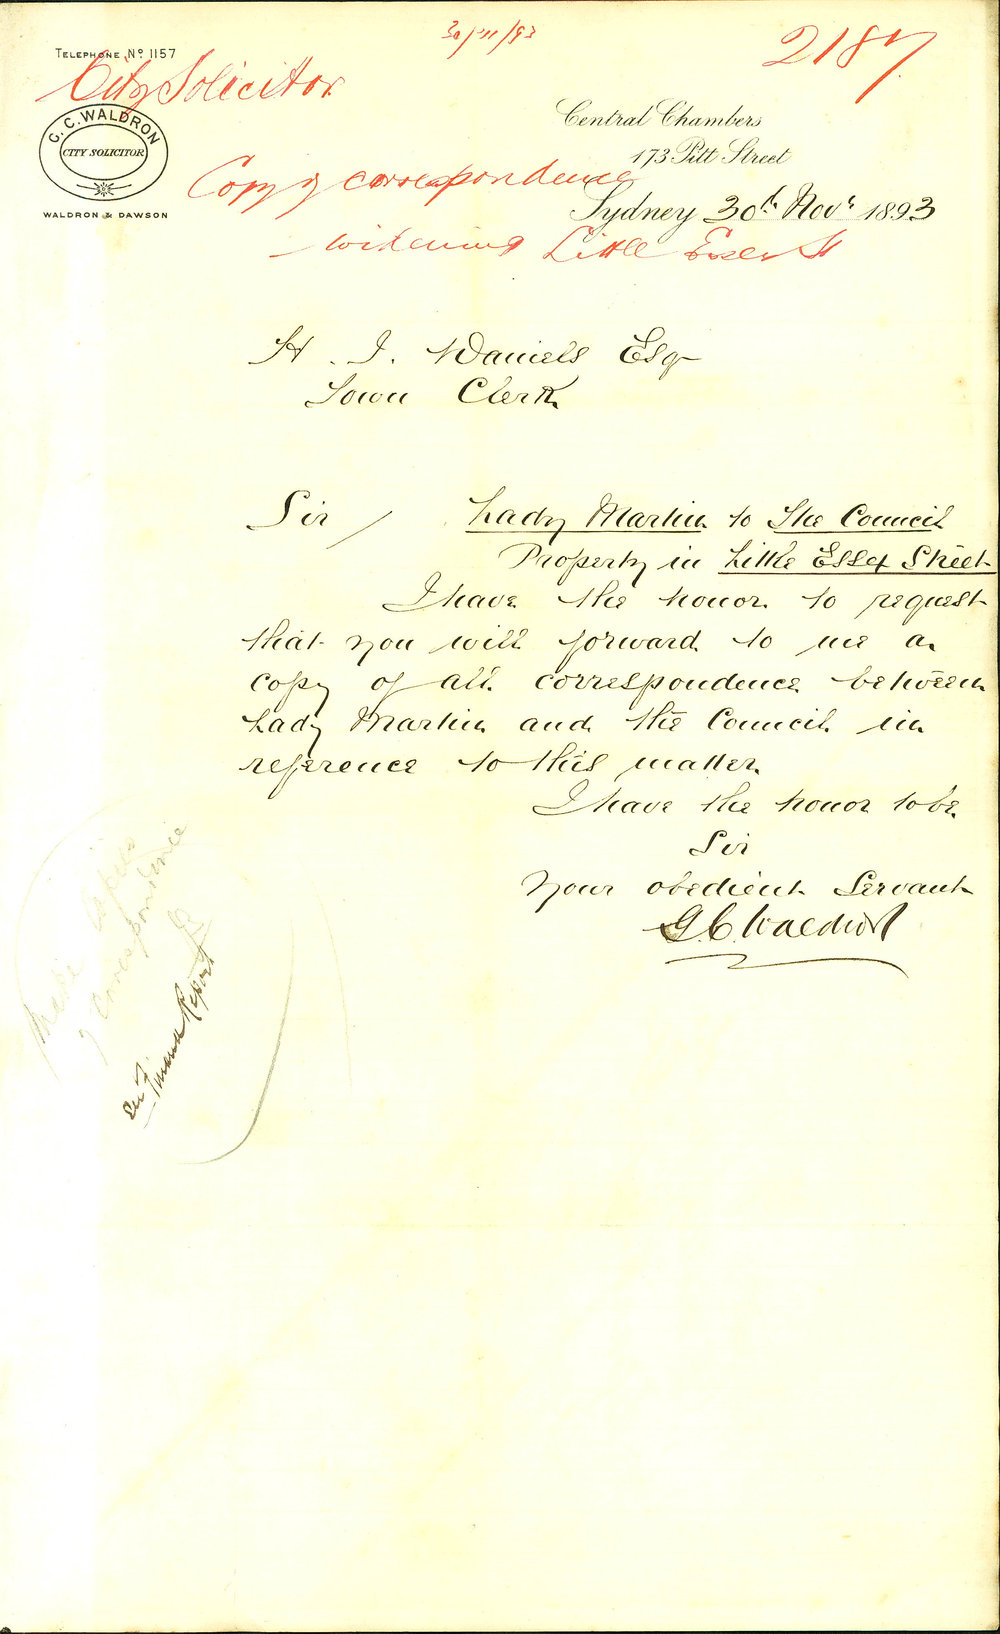 30/11/93
2187
TELEPHONE No 1157
City Solicitor
G. C. WALDRON
CITY SOLICITOR
WALDRON & DAWSON
Central Chambers
173 Pitt Street
Copy of correspondence
Sydney 30th Novr 1893
widening Little Essex St
H. J. Daniels Esq
Town Clerk
Sir / Lady Martin to The Council
Property in Little Essex Street
I have the honor to request
that you will forward to me a
copy of all correspondence between
Lady Martin and the Council in
reference to this matter.
I have the honor to be
Sir
Your obedient Servant
G C Waldron
Make copies
of correspondence
Report